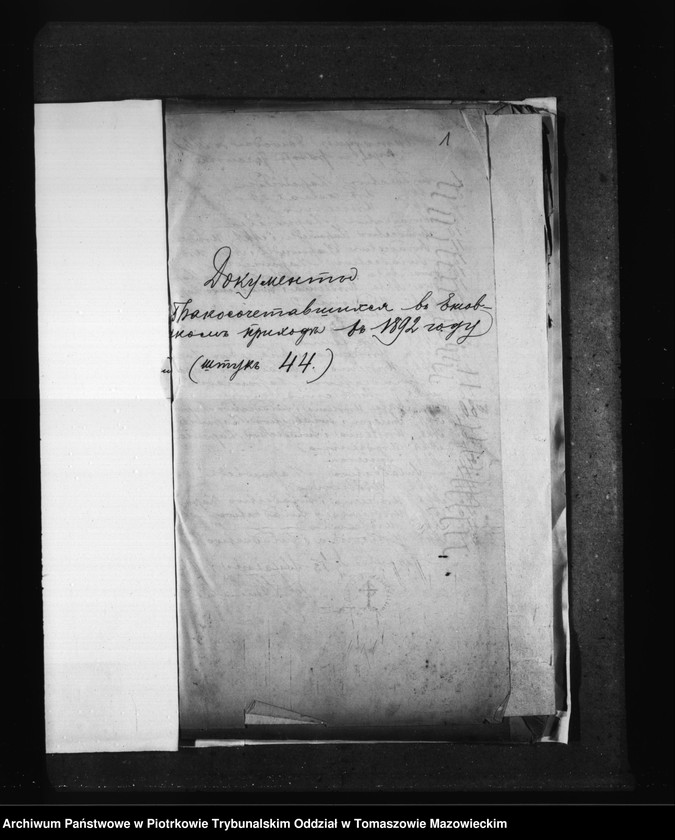 1
Документы
бракосочетавшихся въ Еков-
скомъ приходѣ въ 1892 году
(штукъ 44.)
Archiwum Państwowe w Piotrkowie Trybunalskim Oddział w Tomaszowie Mazowieckim